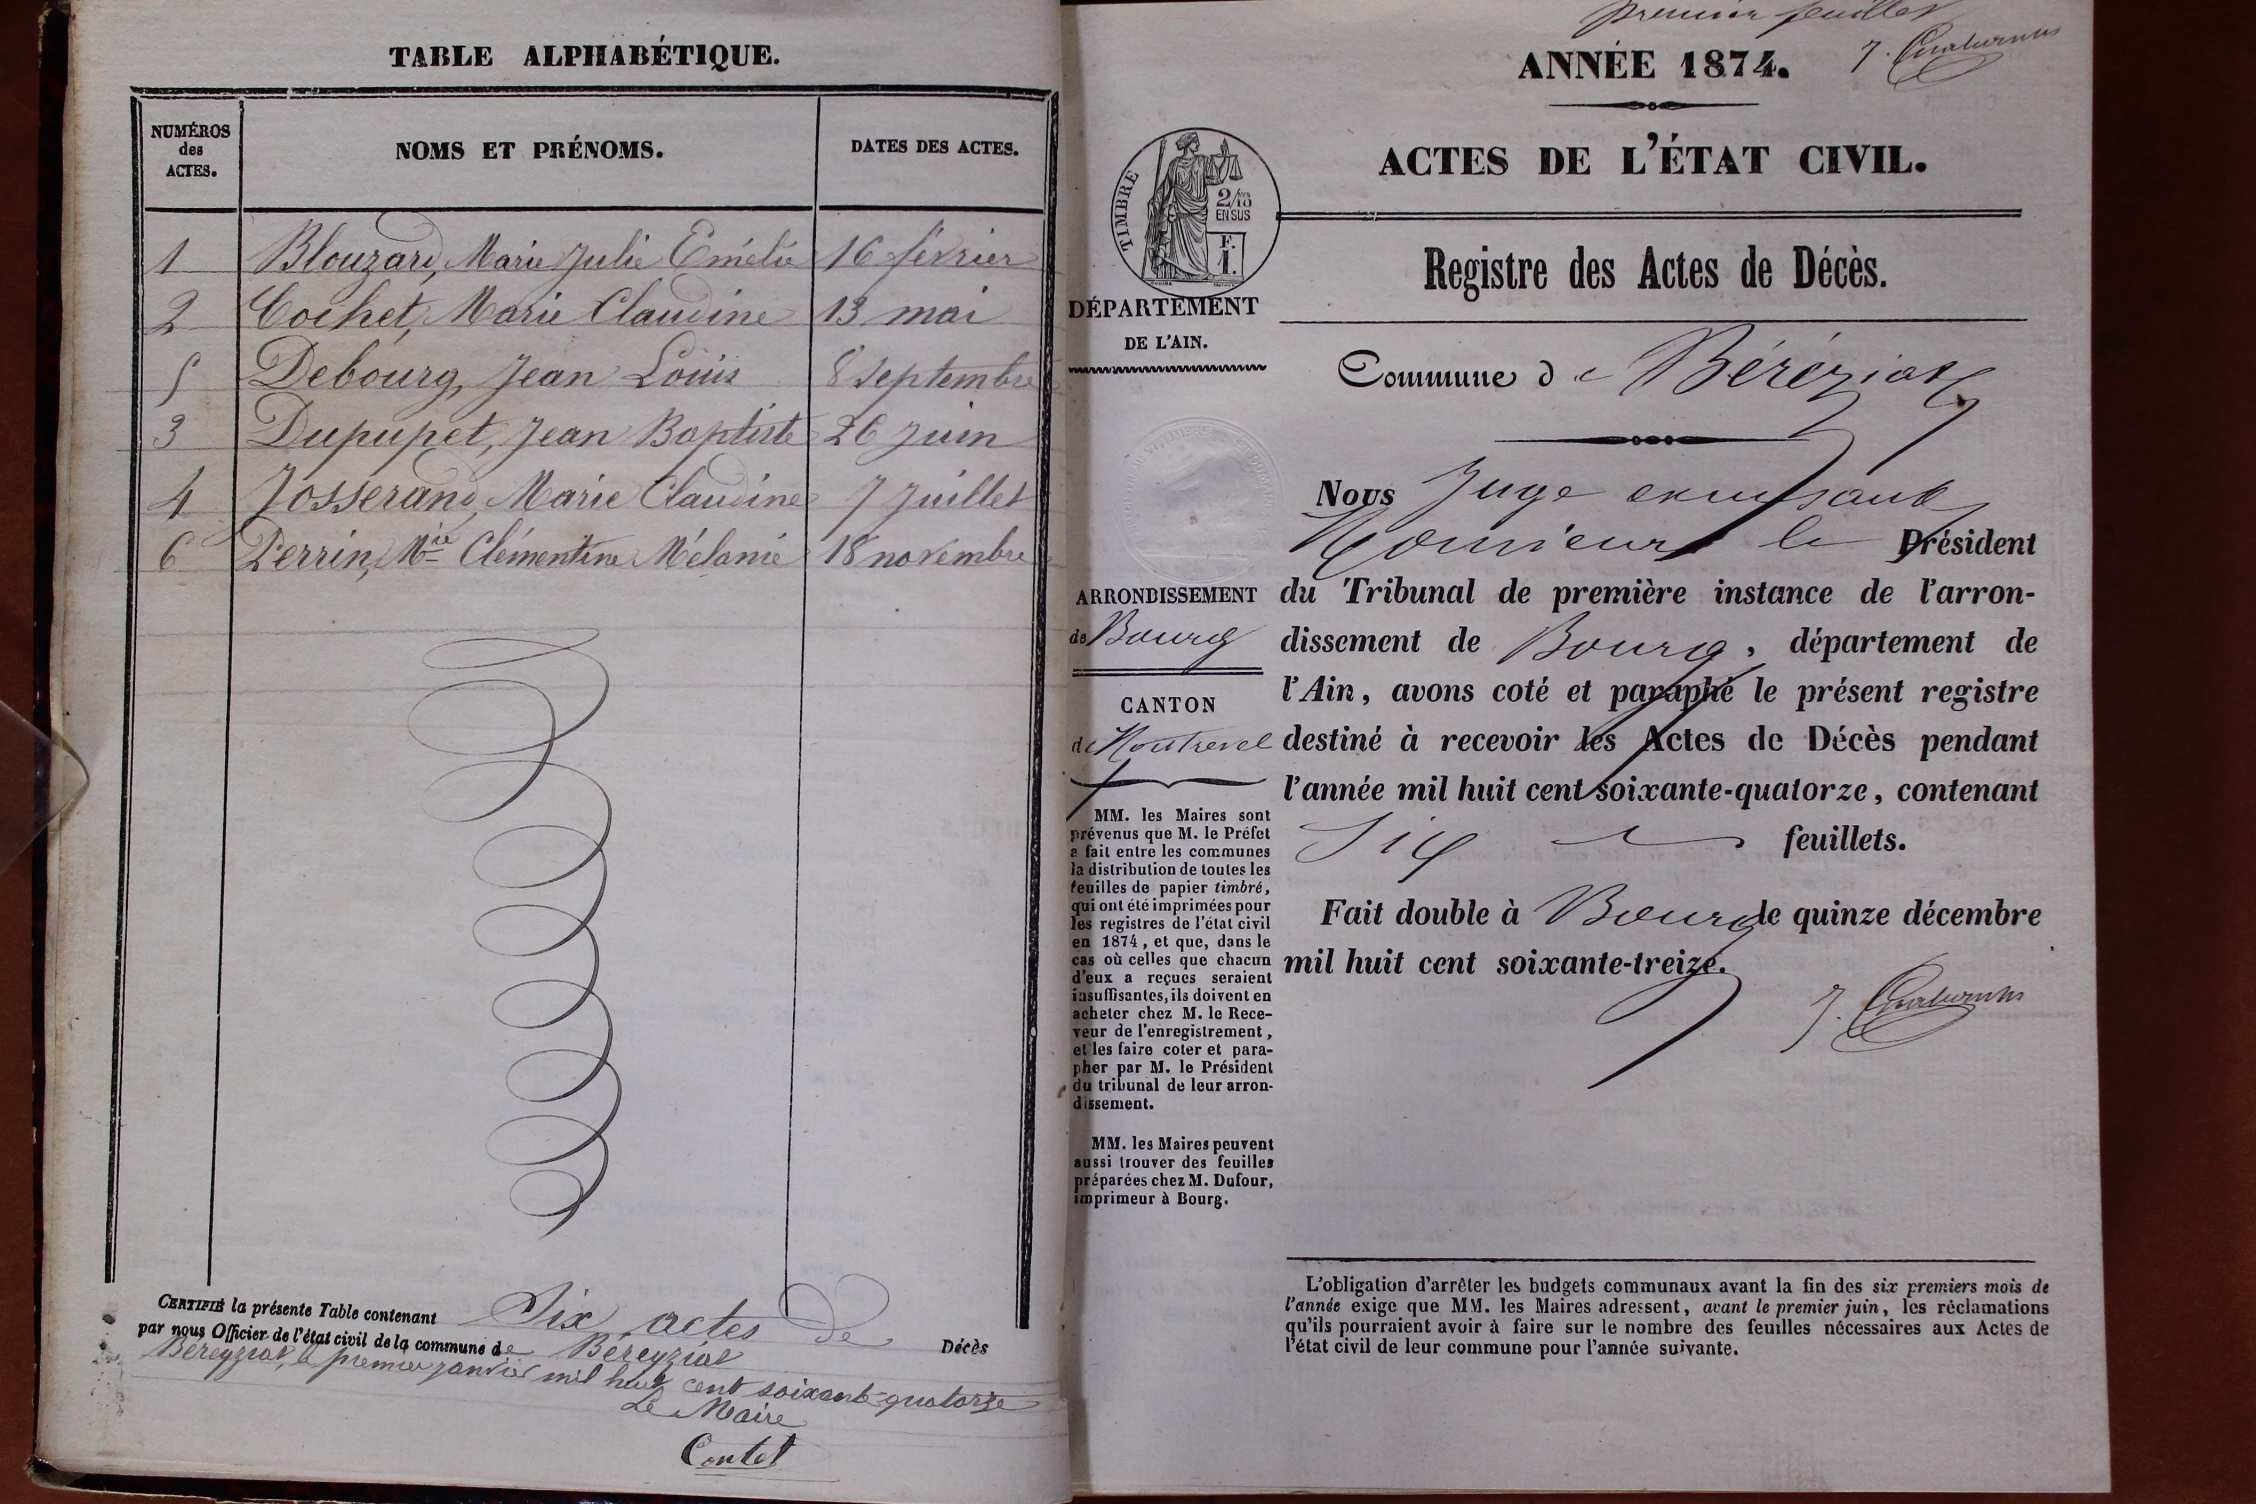 TABLE ALPHABÉTIQUE.
NUMÉROS des ACTES. NOMS ET PRÉNOMS. DATES DES ACTES.
1 Blouzard, Marie Julie Emélie 16 février
2 Cochet, Marie Claudine 13 mai
5 Debourg, Jean Louis 8 septembre
3 Dupupet, Jean Baptiste 26 juin
4 Josserand, Marie Claudine 7 juillet
6 Perrin, Mie Clémentine Mélanie 18 novembre
CERTIFIÉ la présente Table contenant Six actes de Décès
par nous Officier de l'état civil de la commune de Béreyziat
Béreyziat, le premier janvier mil huit cent soixante-quatorze
Le Maire
Contet
premier feuillet
ANNÉE 1874.
ACTES DE L'ÉTAT CIVIL.
TIMBRE
2/10
EN SUS
F.
1.
DÉPARTEMENT
DE L'AIN.
ARRONDISSEMENT
de Bourg
CANTON
de Montrevel
MM. les Maires sont
prévenus que M. le Préfet
a fait entre les communes
la distribution de toutes les
feuilles de papier timbré,
qui ont été imprimées pour
les registres de l'état civil
en 1874, et que, dans le
cas où celles que chacun
d'eux a reçues seraient
insuffisantes, ils doivent en
acheter chez M. le Rece-
veur de l'enregistrement,
et les faire coter et para-
pher par M. le Président
du tribunal de leur arron-
dissement.
MM. les Maires peuvent
aussi trouver des feuilles
préparées chez M. Dufour,
imprimeur à Bourg.
Registre des Actes de Décès.
Commune de Béréziat
Nous Juge
Monsieur le Président
du Tribunal de première instance de l'arron-
dissement de Bourg, département de
l'Ain, avons coté et paraphé le présent registre
destiné à recevoir les Actes de Décès pendant
l'année mil huit cent soixante-quatorze, contenant
Six feuillets.
Fait double à Bourg le quinze décembre
mil huit cent soixante-treize.
L'obligation d'arrêter les budgets communaux avant la fin des six premiers mois de
l'année exige que MM. les Maires adressent, avant le premier juin, les réclamations
qu'ils pourraient avoir à faire sur le nombre des feuilles nécessaires aux Actes de
l'état civil de leur commune pour l'année suivante.